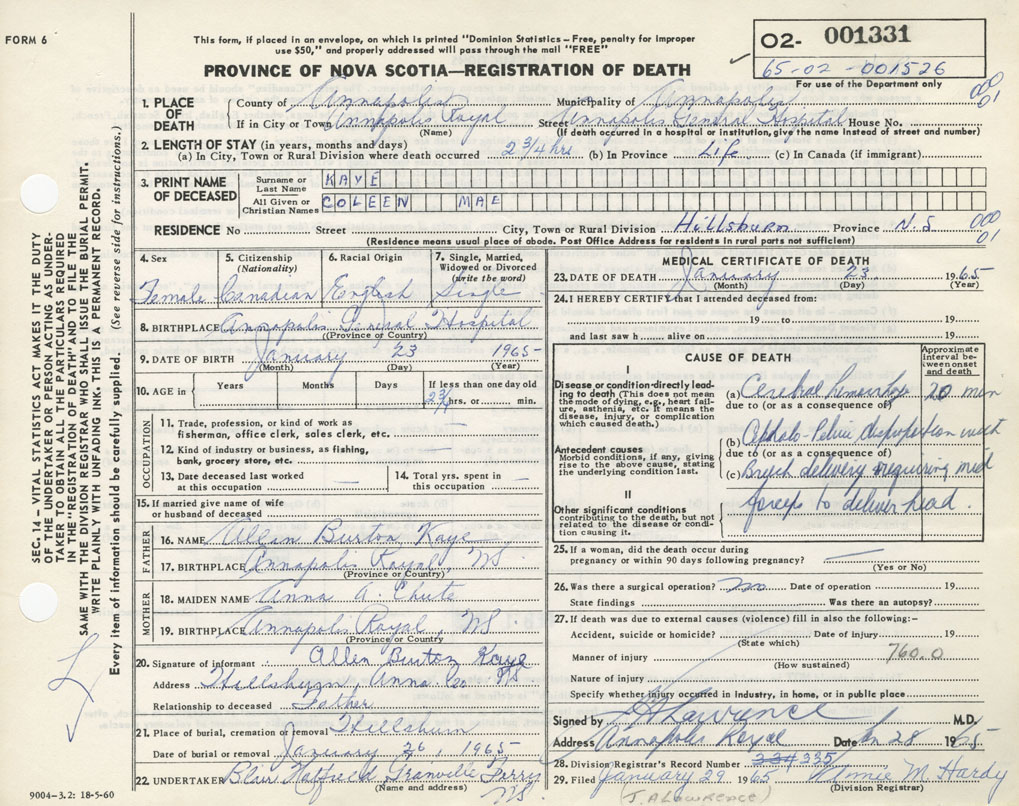 FORM 6
This form, if placed in an envelope, on which is printed "Dominion Statistics – Free, penalty for improper
use $50," and properly addressed will pass through the mail "FREE"
O2- 001331
65-02-001526
For use of the Department only
PROVINCE OF NOVA SCOTIA—REGISTRATION OF DEATH
1. PLACE OF DEATH
County of Annapolis Municipality of Annapolis
If in City or Town Annapolis Royal Street Annapolis General Hospital House No.
(Name) (If death occurred in a hospital or institution, give the name instead of street and number)
000
01
2. LENGTH OF STAY (in years, months and days)
(a) In City, Town or Rural Division where death occurred 2 3/4 hrs (b) In Province Life (c) In Canada (if immigrant)
3. PRINT NAME OF DECEASED
Surname or Last Name KAYE
All Given or Christian Names COLEEN MAE
RESIDENCE No Street City, Town or Rural Division Hillsburn Province N.S
(Residence means usual place of abode. Post Office Address for residents in rural parts not sufficient)
000
01
4. Sex 5. Citizenship (Nationality) 6. Racial Origin 7. Single, Married, Widowed or Divorced (write the word)
Female Canadian English Single
8. BIRTHPLACE Annapolis General Hospital
(Province or Country)
9. DATE OF BIRTH January 23 1965
(Month) (Day) (Year)
10. AGE in Years Months Days If less than one day old
2 3/4 hrs. or min.
OCCUPATION
11. Trade, profession, or kind of work as
fisherman, office clerk, sales clerk, etc. —
12. Kind of industry or business, as fishing,
bank, grocery store, etc. —
13. Date deceased last worked
at this occupation —
14. Total yrs. spent in
this occupation —
15. If married give name of wife
or husband of deceased
FATHER
16. NAME Allen Burton Kaye
17. BIRTHPLACE Annapolis Royal, NS
(Province or Country)
MOTHER
18. MAIDEN NAME Anna A. Chute
19. BIRTHPLACE Annapolis Royal, NS
(Province or Country)
20. Signature of informant Allen Burton Kaye
Address Hillsburn, Anna. Co. NS
Relationship to deceased Father
21. Place of burial, cremation or removal Hillsburn
Date of burial or removal January 26, 1965
22. UNDERTAKER Blair Hatfield Granville Ferry
(Name and address) NS.
9004–3.2: 18-5-60
MEDICAL CERTIFICATE OF DEATH
23. DATE OF DEATH January 23 1965
(Month) (Day) (Year)
24. I HEREBY CERTIFY that I attended deceased from:
19 to 19
and last saw h alive on 19
CAUSE OF DEATH
Approximate interval between onset and death
I
Disease or condition directly lead-
ing to death (This does not mean
the mode of dying, e.g., heart fail-
ure, asthenia, etc. It means the
disease, injury, or complication
which caused death.)
(a) Cerebral hemorrhage 20 min
due to (or as a consequence of)
Antecedent causes
Morbid conditions, if any, giving
rise to the above cause, stating
the underlying condition last.
(b) Cephalo-Pelvic disproportion with
due to (or as a consequence of)
(c) Breech delivery requiring mid
forceps to deliver head.
II
Other significant conditions
contributing to the death, but not
related to the disease or condi-
tion causing it.
25. If a woman, did the death occur during
pregnancy or within 90 days following pregnancy? —
(Yes or No)
26. Was there a surgical operation? no Date of operation 19
State findings Was there an autopsy?
27. If death was due to external causes (violence) fill in also the following:–
Accident, suicide or homicide? Date of injury 19
(State which)
Manner of injury 760.0
(How sustained)
Nature of injury
Specify whether injury occurred in industry, in home, or in public place
Signed by JA Lawrence M.D.
Address Annapolis Royal Date Jan 28 1965
28. Division Registrar's Record Number 334 335
29. Filed January 29. 1965 Minnie M. Hardy
(Division Registrar)
(J. A LAWRENCE)
SEC. 14 – VITAL STATISTICS ACT MAKES IT THE DUTY
OF THE UNDERTAKER OR PERSON ACTING AS UNDER-
TAKER TO OBTAIN ALL THE PARTICULARS REQUIRED
IN THE "REGISTRATION OF DEATH" AND TO FILE THE
SAME WITH THE DIVISION REGISTRAR WHO SHALL ISSUE THE BURIAL PERMIT.
WRITE PLAINLY WITH UNFADING INK. THIS IS A PERMANENT RECORD.
Every item of information should be carefully supplied. (See reverse side for instructions.)